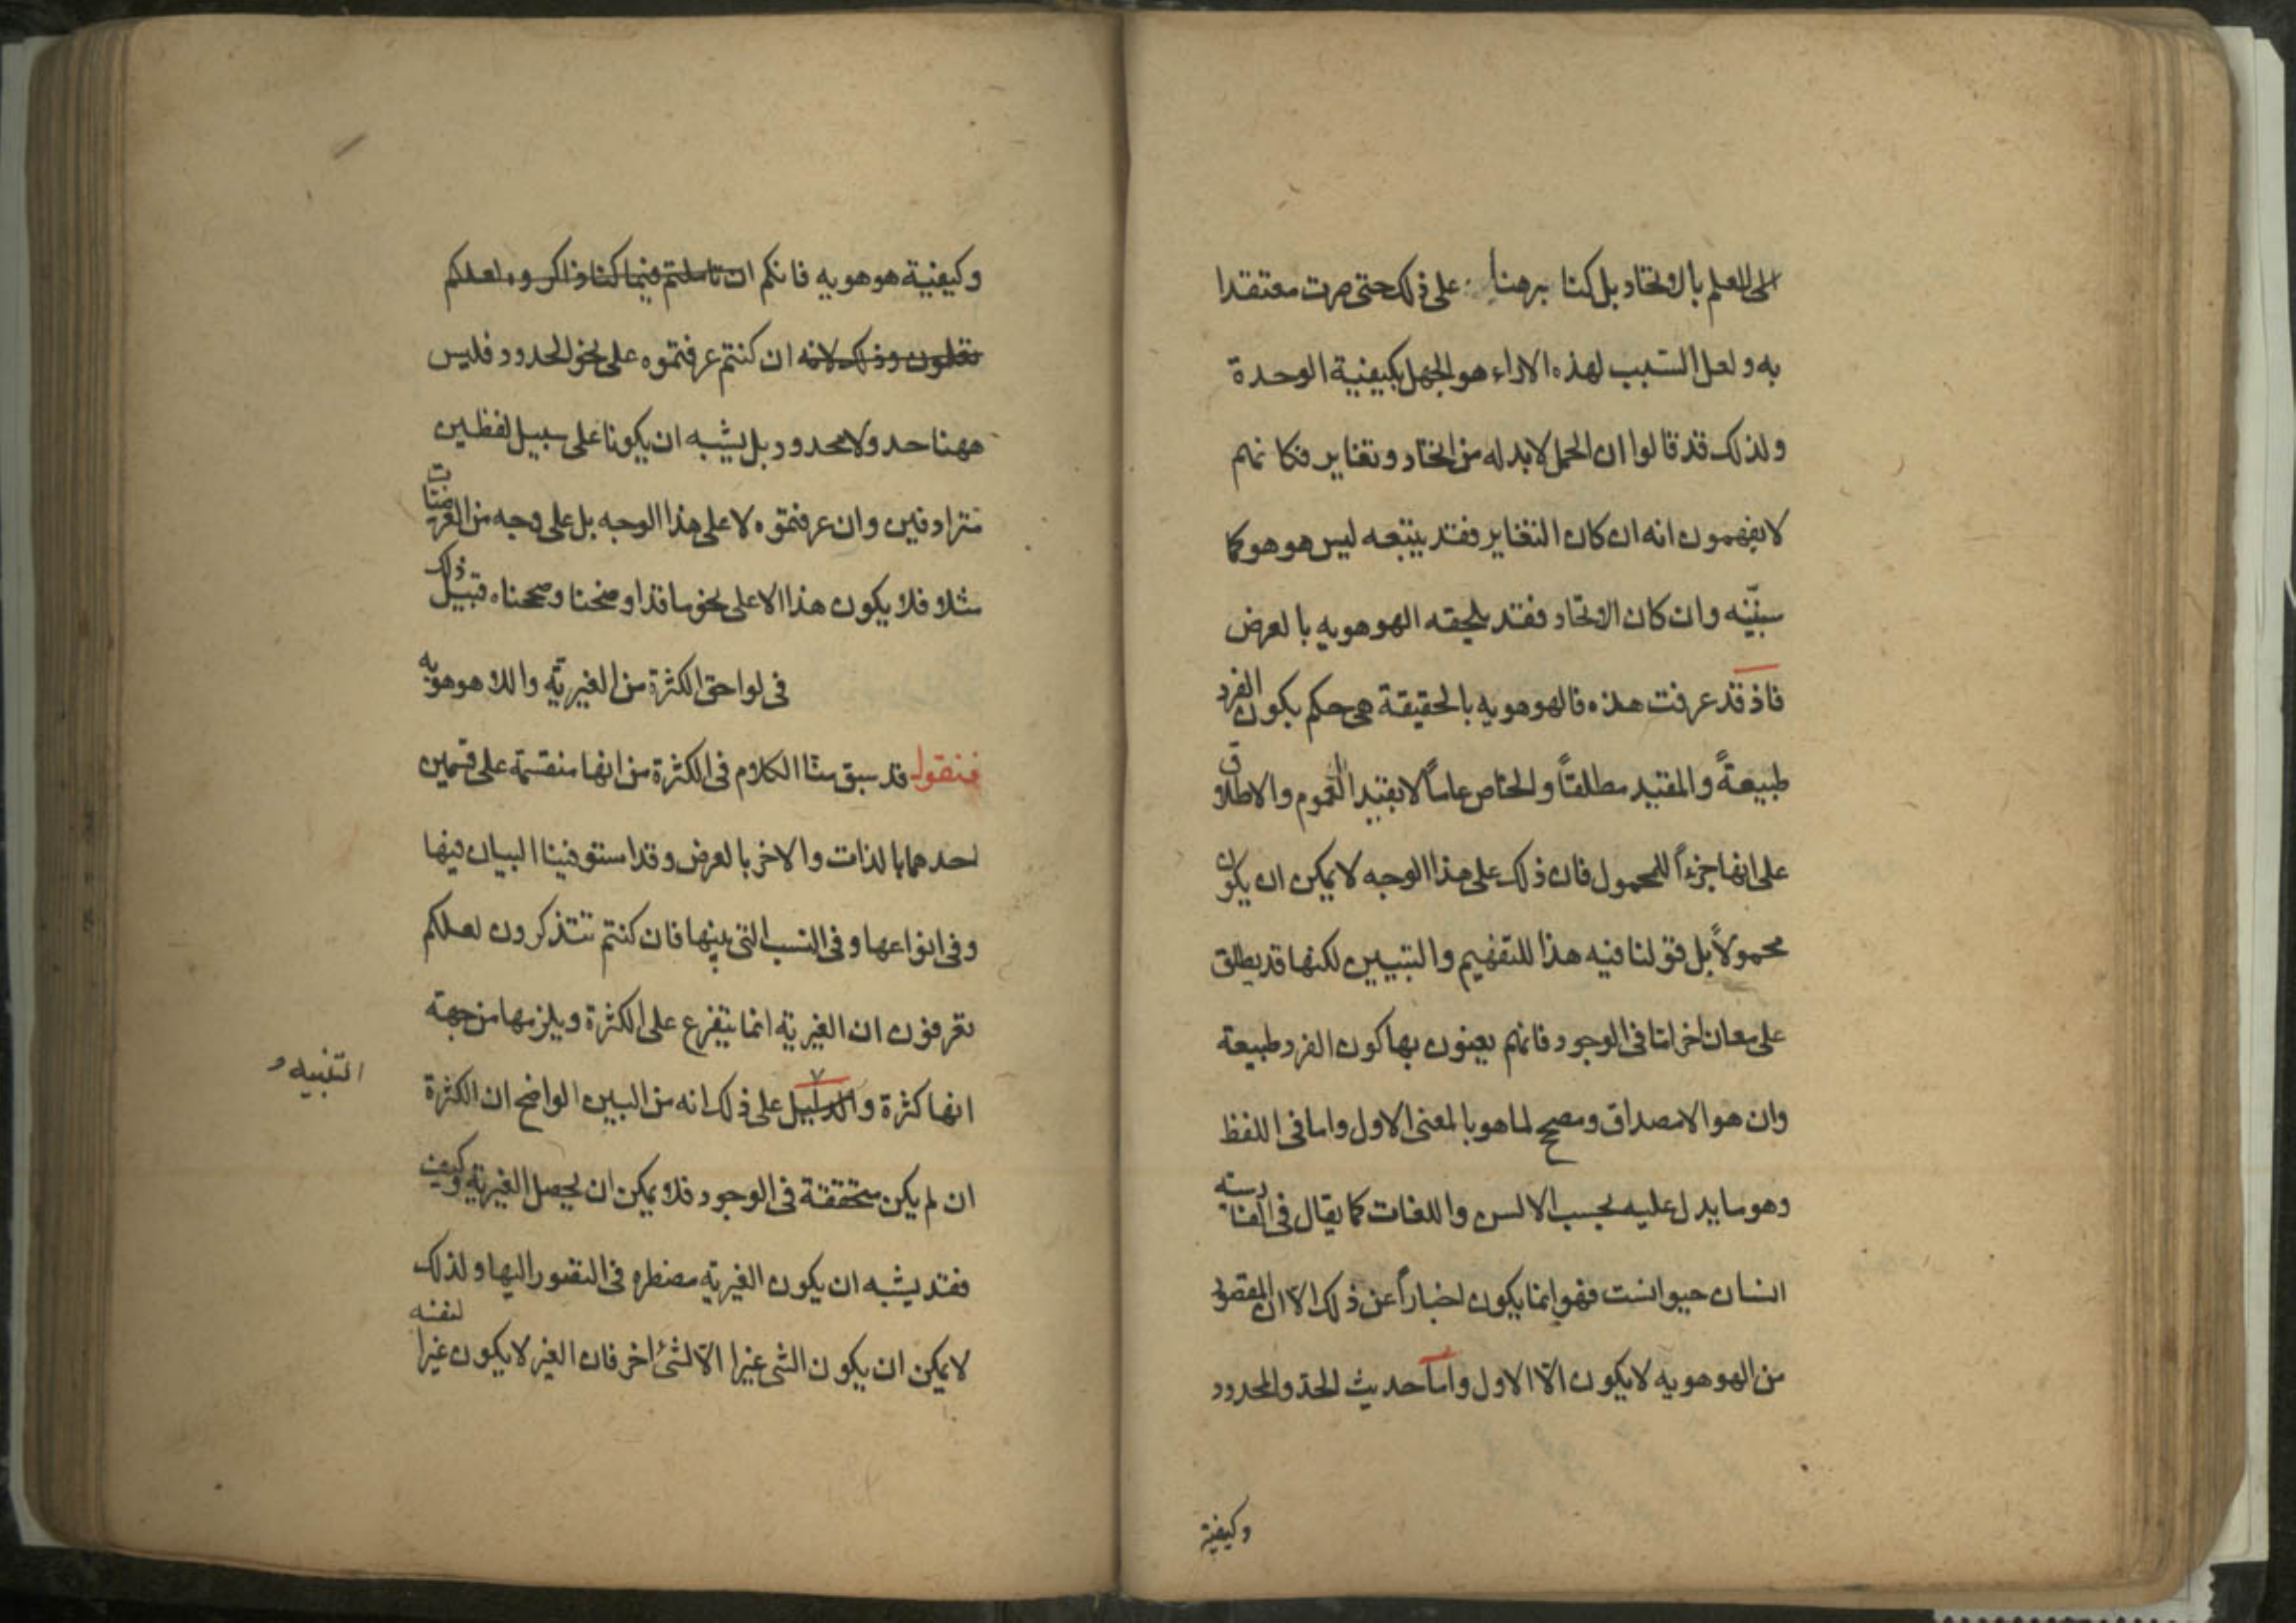 الى العلم بالاتحاد بل كنا برهنا على ذلك حتى صرت معتقدا
به ولعل السبب لهذه الاراء هو الجهل بكيفية الوحدة
ولذلك قد قالوا ان الحمل لابد له من اتحاد وتغاير فكانهم
لا يفهمون انه ان كان التغاير فقد يتبعه ليس هو هو كما
سنبيّنه وان كان الاتحاد فقد يلحقه الهوهويه بالعرض
فاذ قد عرفت هذه فالهوهويه بالحقيقة هى حكم بكون الفرد
طبيعةً والمقيد مطلقاً والخاص عاماً لا بقيد العموم والاطلاق
على انها جزءاً للمحمول فان ذلك على هذا الوجه لا يمكن ان يكون
محمولاً بل قولنا فيه هذا للتفهيم والتبيين لكنها قد يطلق
على معان اخر اما فى الوجود فانهم يعنون بها كون الفرد طبيعة
وان هو الا مصداق ومصحح لما هو بالمعنى الاول واما فى اللفظ
وهو ما يدل عليه بحسب الالسن واللغات كما يقال فى الفارسيه
انسان حيوانست فهو انما يكون اخباراً عن ذلك الّا ان المقصود
من الهوهويه لا يكون الّا الاول واما حديث الحدّ والمحدود
وكيفية
وكيفية هوهويه فانكم ان تاملتم فيما كنا ذاكروه لعلكم
تعلمون وذلك لانه ان كنتم عرفتموه على نحو الحدود فليس
ههنا حد ولا محدود بل يشبه ان يكونا على سبيل لفظين
مترادفين وان عرفتموه لا على هذا الوجه بل على وجه من العرضيات
مثلا فلا يكون هذا الا على نحو ما قد اوضحنا وصححناه قبيل ذلك
فى لواحق الكثرة من الغيريّة واللا هوهويّه
فنقول قد سبق منّا الكلام فى الكثرة من انها منقسمة على قسمين
احدهما بالذات والاخر بالعرض وقد استوفينا البيان فيها
وفى انواعها وفى النسب التى بينها فان كنتم تتذكرون لعلكم
تعرفون ان الغيريّة انما يتفرع على الكثرة ويلزمها من جهة
انها كثرة والدليل على ذلك انه من البين الواضح ان الكثرة
التنبيه
ان لم يكن متحققة فى الوجود فلا يمكن ان يحصل الغيريّة وكيف
فقد يشبه ان يكون الغيريّة مضطره فى التقرر اليها ولذلك
لا يمكن ان يكون الشئ غيرا الّا لشئ اخر فان الغير لا يكون غيرا لنفسه